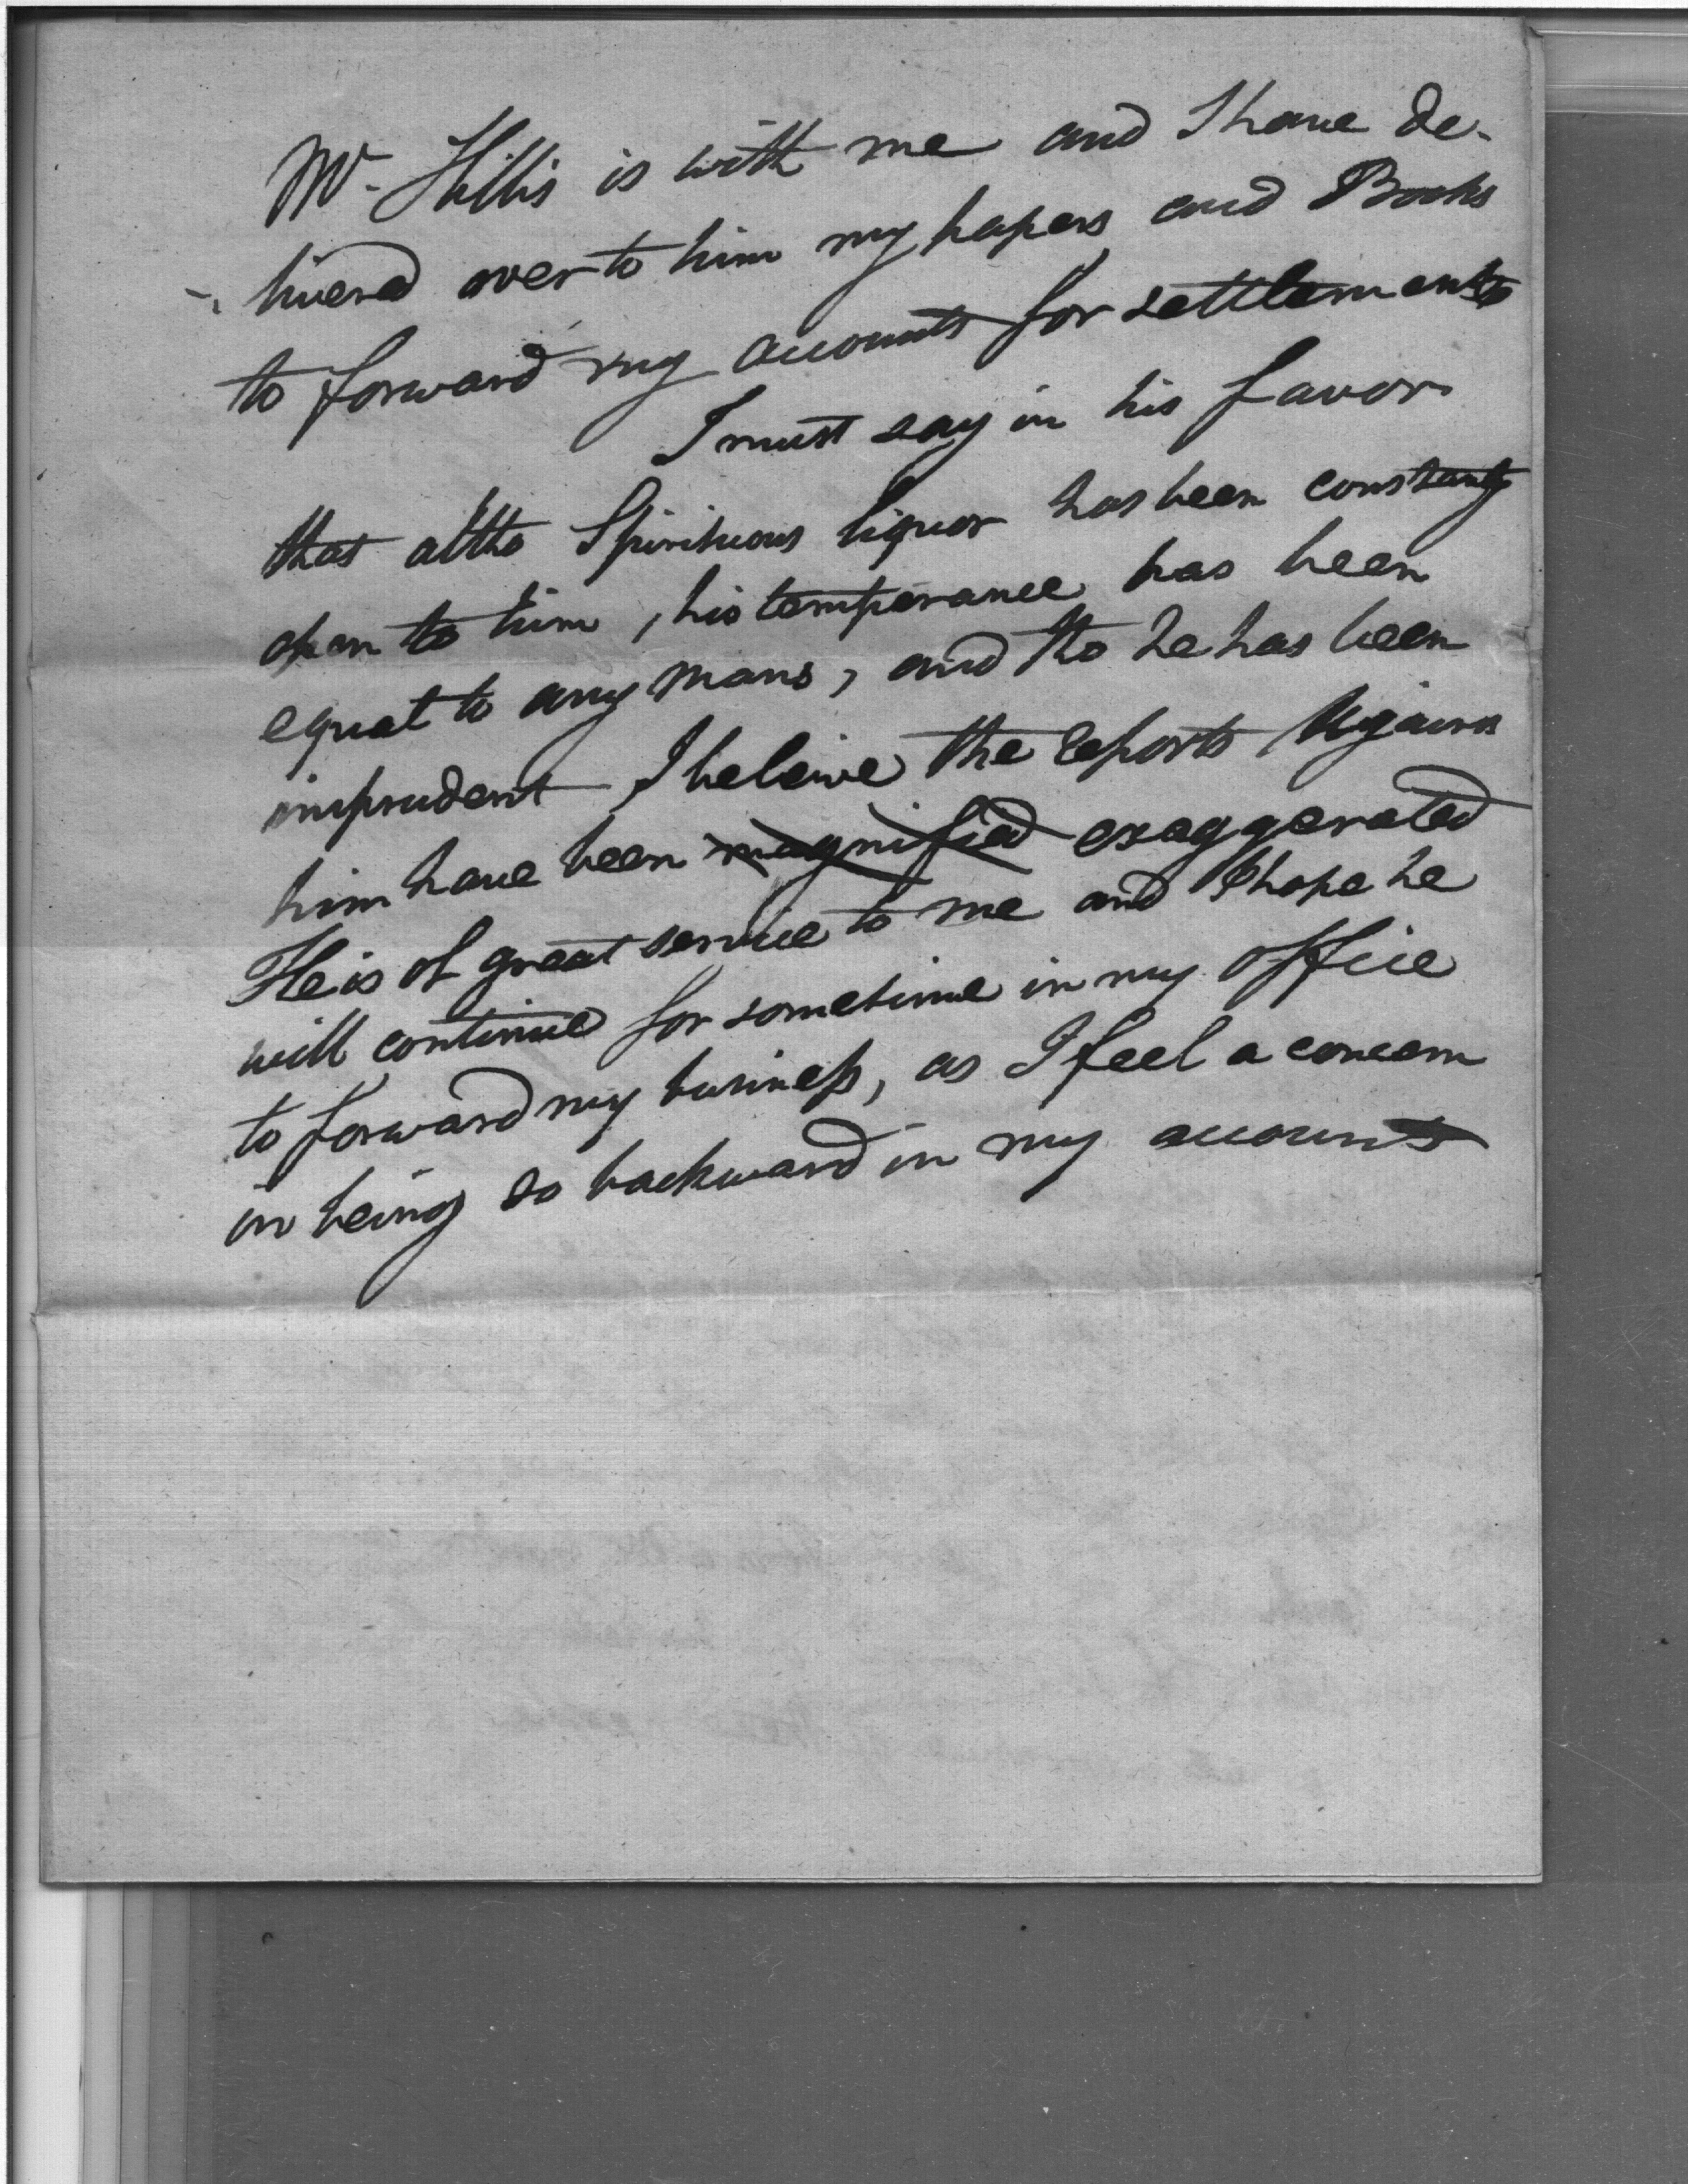 Mr. Hillis is with me and I have de-
- livered over to him my papers and Books
to forward my accounts for settlements
I must say in his favor
that altho Spirituous liquor has been constantly
open to him, his temperance has been
equal to any mans, and tho he has been
imprudent I beleive the reports Against
him have been magnified exaggerated
He is of great service to me and I hope he
will continue for sometime in my office
to forward my business, as I feel a concern
in being so backward in my accounts